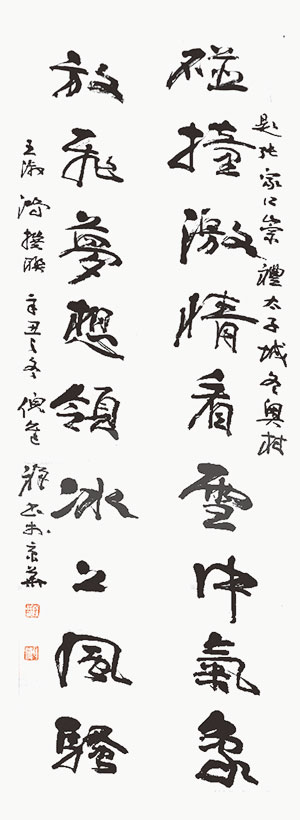 題張家口崇禮太子城冬奧村
碰撞激情看雪中氣象
放飛夢想領冰上風騷
王淑 撰聯 辛丑之冬 書於京華